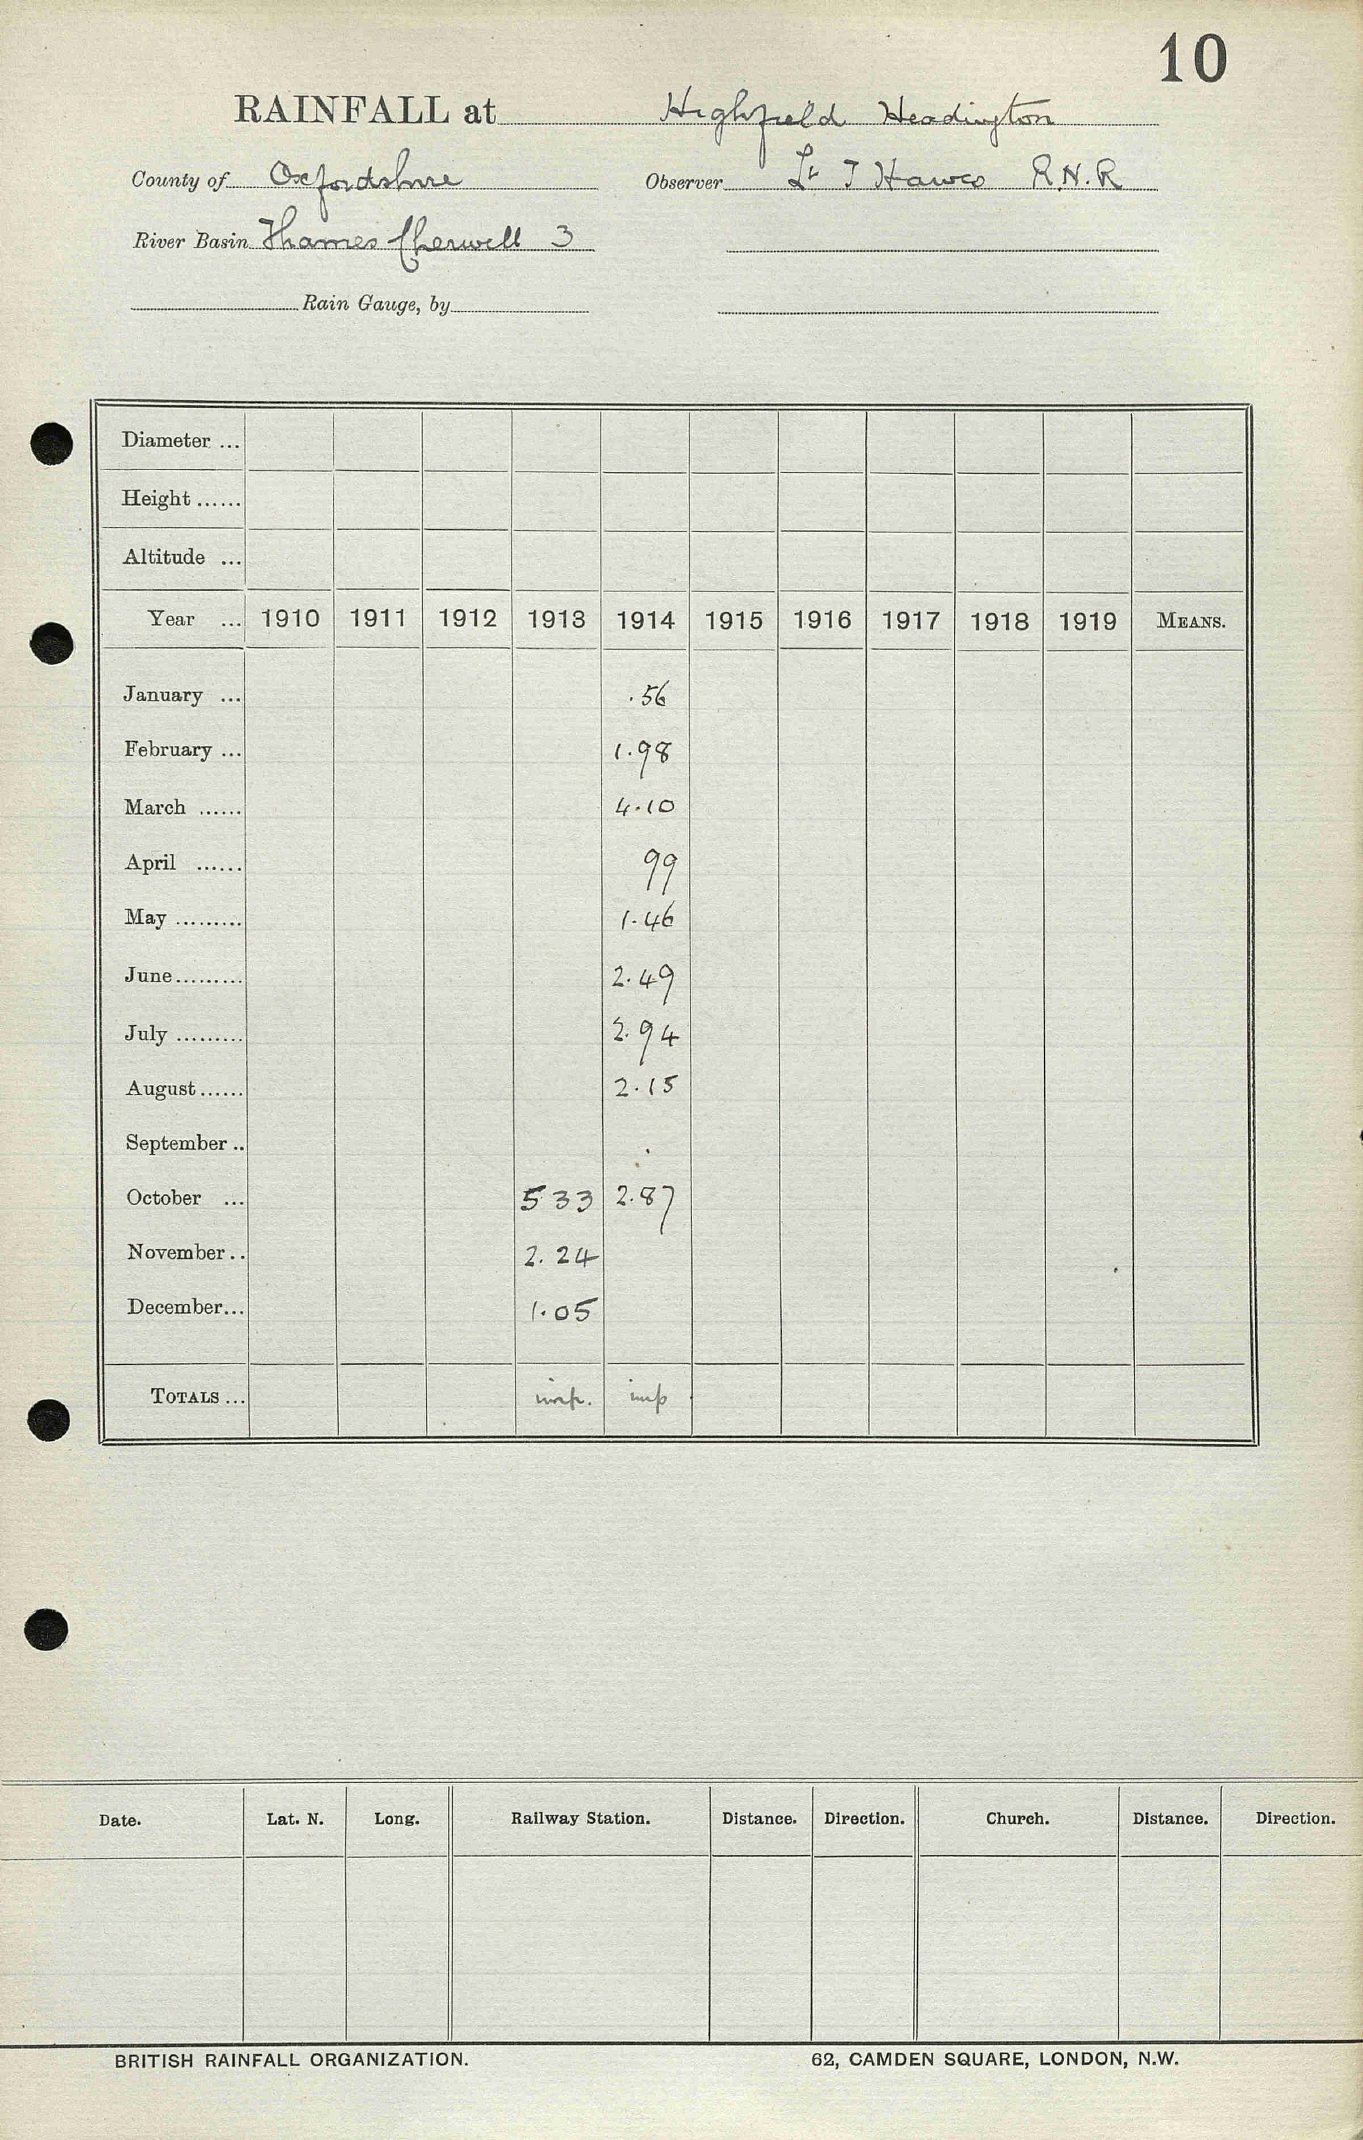 10
RAINFALL at Highfield Headington
County of Oxfordshire Observer Lt T Hawes R.N.R
River Basin Thames Cherwell 3
Rain Gauge, by
Diameter ...
Height ......
Altitude ...
Year ... 1910 1911 1912 1913 1914 1915 1916 1917 1918 1919 MEANS.
January ... .56
February ... 1.98
March ...... 4.10
April ...... 99
May ......... 1.46
June ......... 2.49
July ......... 2.94
August ...... 2.15
September ..
October ... 5 33 2.87
November .. 2.24
December... 1.05
TOTALS ... imp. imp
Date. Lat. N. Long. Railway Station. Distance. Direction. Church. Distance. Direction.
BRITISH RAINFALL ORGANIZATION. 62, CAMDEN SQUARE, LONDON, N.W.